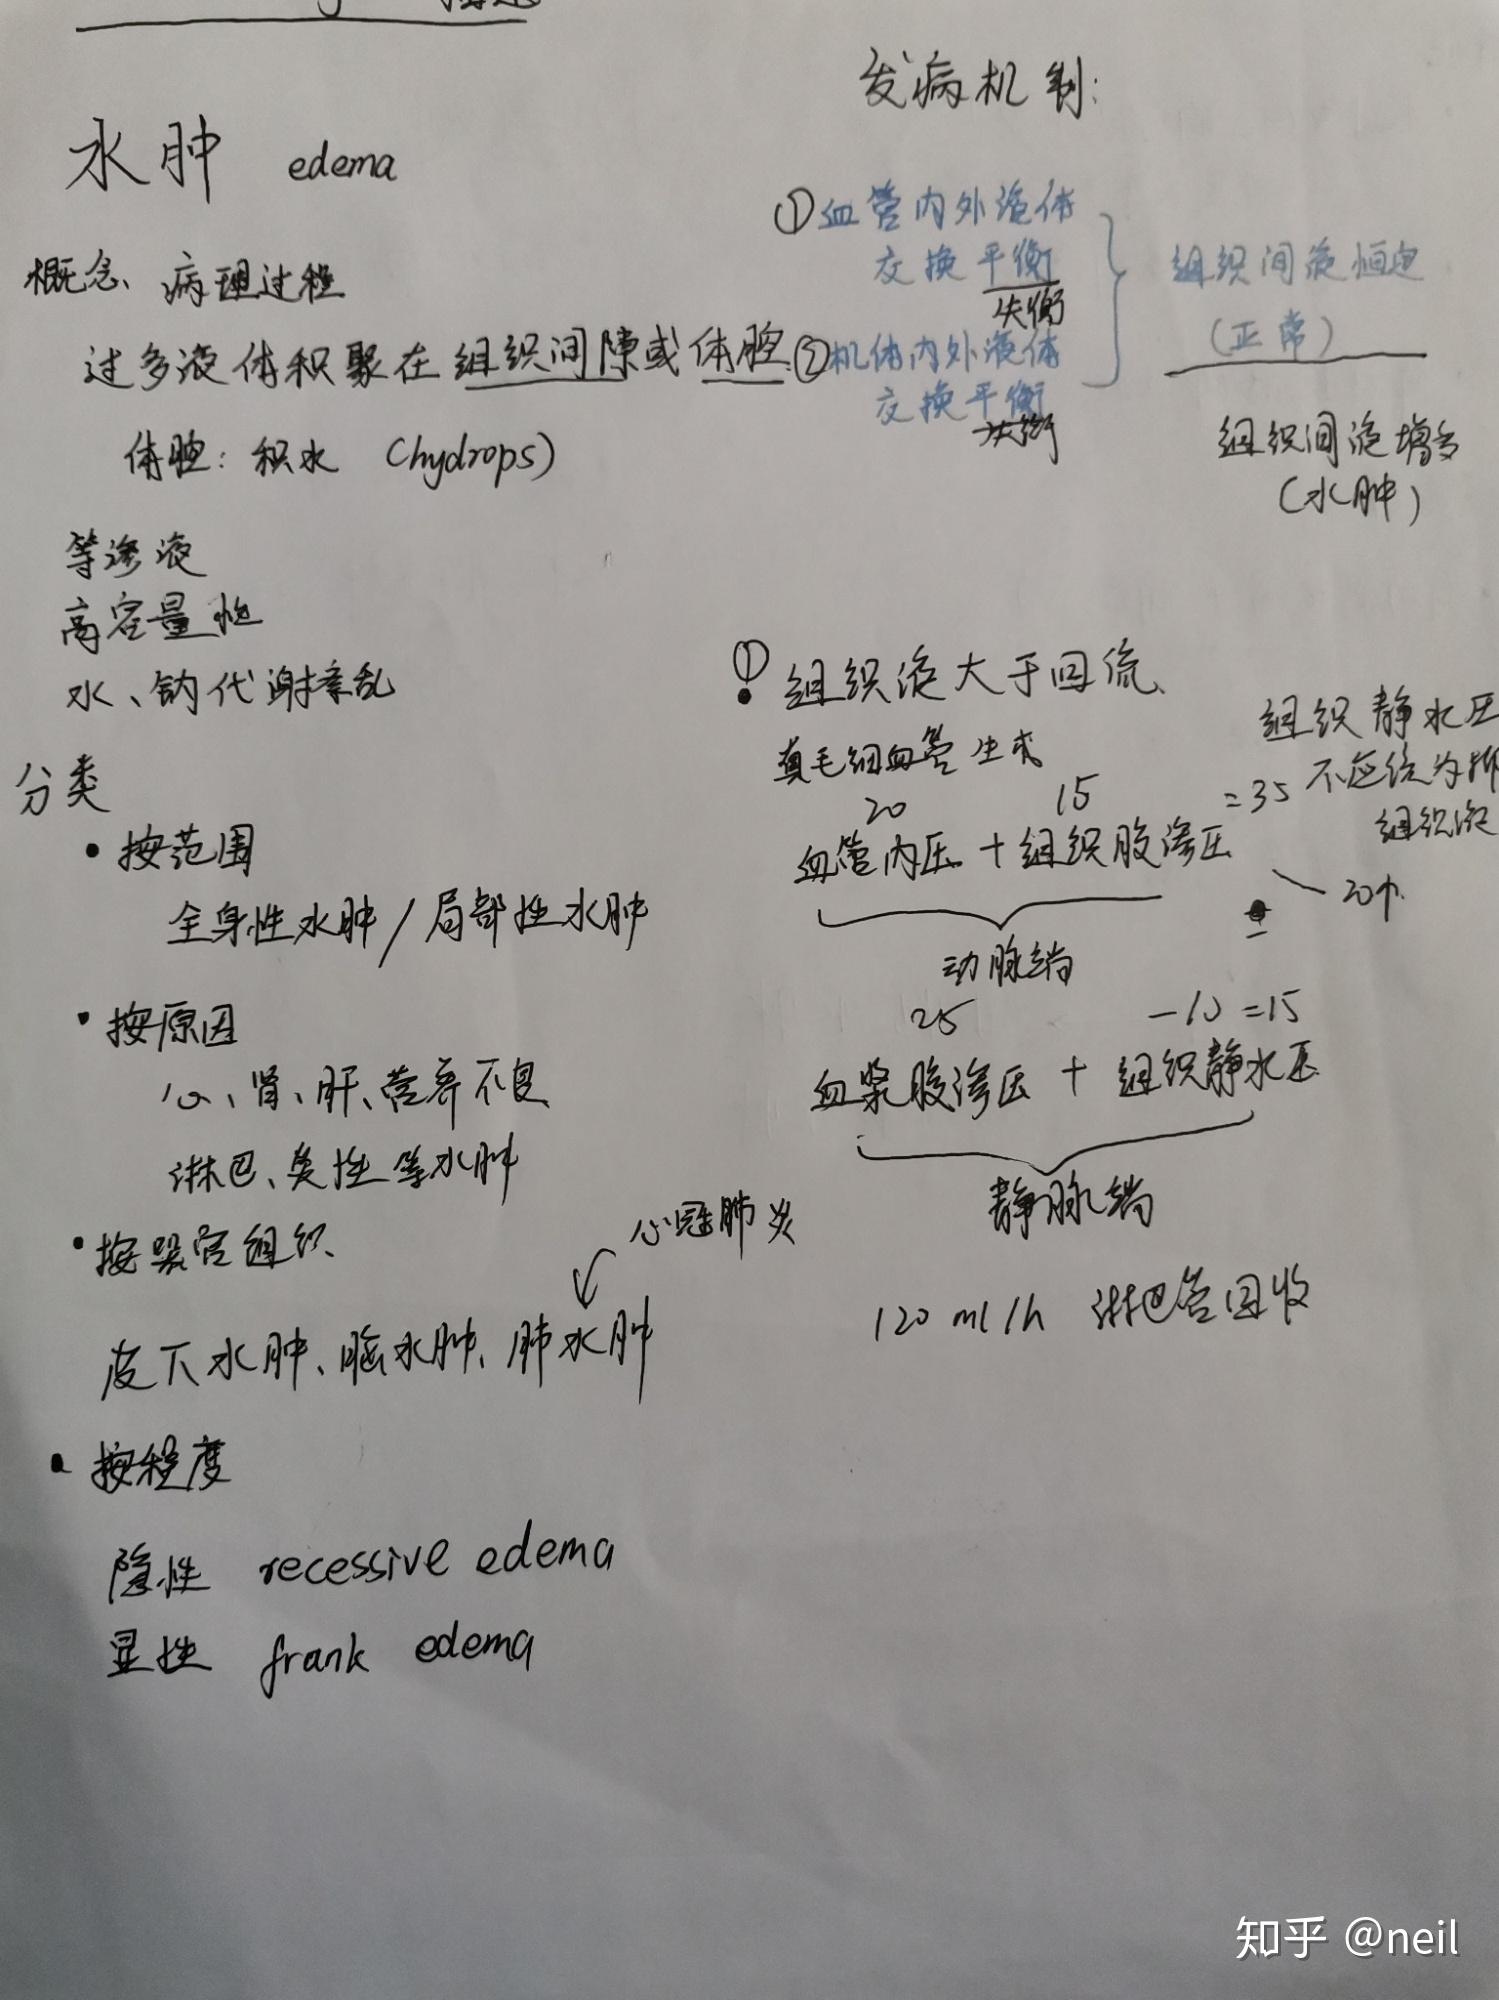 水肿 edema
概念、病理过程
过多液体积聚在组织间隙或体腔
体腔：积水 (hydrops)
等渗液
高容量性
水、钠代谢紊乱
分类
• 按范围
全身性水肿/局部性水肿
• 按原因
心、肾、肝、营养不良
淋巴、炎性等水肿
• 按器官组织
新冠肺炎
皮下水肿、脑水肿、肺水肿
• 按程度
隐性 recessive edema
显性 frank edema
发病机制：
①血管内外液体
交换平衡
失衡
②机体内外液体
交换平衡
失衡
组织间液恒定
（正常）
组织间液增多
（水肿）
① 组织液大于回流
真毛细血管生成
20 15 =35
血管内压 + 组织胶渗压
动脉端
组织静水压
不应视为抑
组织液
25 -10 =15
血浆胶渗压 + 组织静水压
静脉端
120 ml/h 淋巴管回收
知乎 @neil